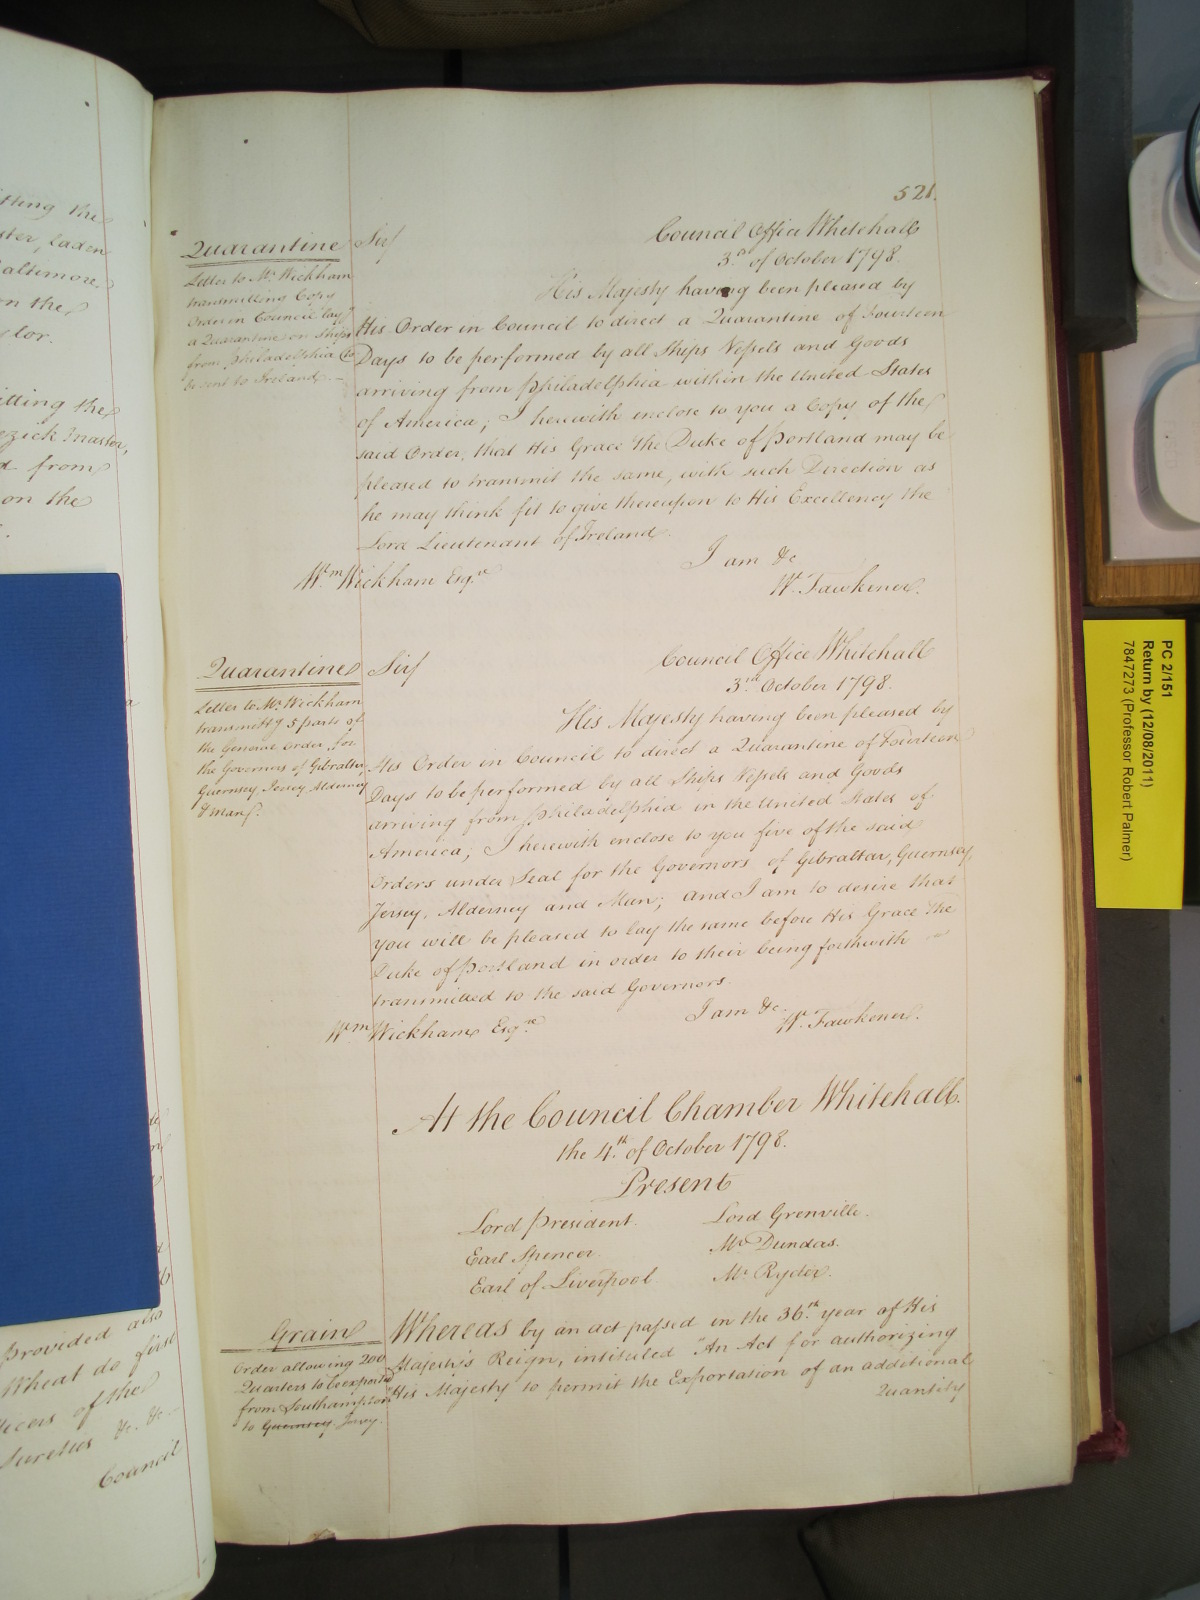 521.
Quarantine
Letter to Mr. Wickham
transmitting Copy
Order in Council lay.g
a Quarantine on Ships
from Philadelphia to
be sent to Ireland.
Sir/
Council Office Whitehall
3.rd of October 1798.
His Majesty having been pleased by
His Order in Council to direct a Quarantine of Fourteen
Days to be performed by all Ships Vessels and Goods
arriving from Philadelphia within the United States
of America; I herewith inclose to you a Copy of the
said Order, that His Grace the Duke of Portland may be
pleased to transmit the same, with such Direction as
he may think fit to give thereupon to His Excellency the
Lord Lieutenant of Ireland.
I am &c
Wm. Wickham Esq.re
W. Fawkener.
Quarantine
Letter to Mr. Wickham
transmittg 5 parts of
the General Order for
the Governors of Gibraltar,
Guernsey, Jersey, Alderney
& Man.
Sir/
Council Office Whitehall
3.rd October 1798.
His Majesty having been pleased by
His Order in Council to direct a Quarantine of Fourteen
Days to be performed by all Ships Vessels and Goods
arriving from Philadelphia in the United States of
America; I herewith enclose to you five of the said
Orders under Seal for the Governors of Gibraltar, Guernsey,
Jersey, Alderney and Man; and I am to desire that
you will be pleased to lay the same before His Grace the
Duke of Portland in order to their being forthwith
transmitted to the said Governors.
I am &c.
Wm Wickham Esq.re
W. Fawkener.
At the Council Chamber Whitehall.
the 4.th of October 1798.
Present
Lord President. Lord Grenville.
Earl Spencer. Mr. Dundas.
Earl of Liverpool Mr. Ryder.
Grain
Order allowing 200
Quarters to be exported
from Southampton
to Guernsey Jersey.
Whereas by an act passed in the 36.th year of His
Majesty's Reign, intituled "An Act for authorizing
"His Majesty to permit the Exportation of an additional
Quantity
tting the
laden
altimore
on the
ylor.
itting the
Master,
d from
on the
Provided also
Wheat do first
of the
Sureties &c. &c.
Council
PC 2/151
Return by (12/08/2011)
7847273 (Professor Robert Palmer)